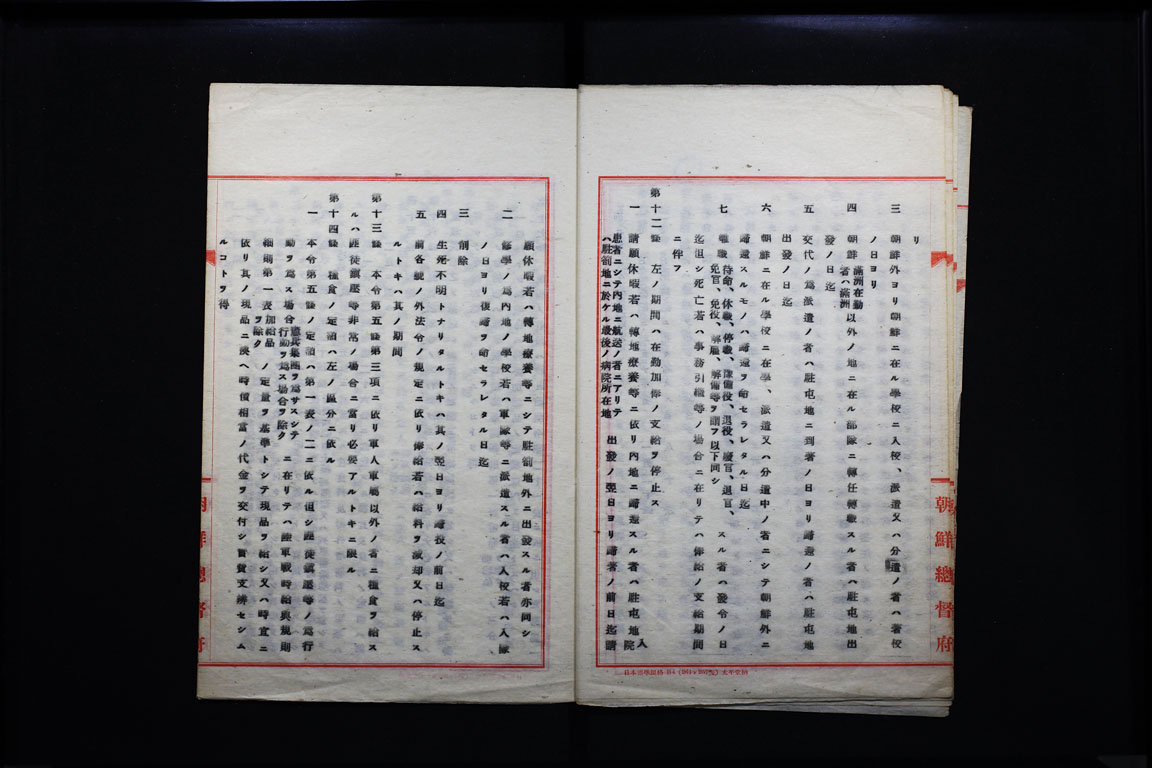 リ
三 朝鮮外ヨリ朝鮮ニ在ル學校ニ入校、派遣又ハ分遣ノ者ハ著校
ノ日ヨリ
四 朝鮮 滿洲在勤者ハ滿洲 以外ノ地ニ在ル部隊ニ轉任轉職スル者ハ駐屯地出
發ノ日迄
五 交代ノ爲派遣ノ者ハ駐屯地ニ到著ノ日ヨリ歸還ノ者ハ駐屯地
出發ノ日迄
六 朝鮮ニ在ル學校ニ在學、派遣又ハ分遣中ノ者ニシテ朝鮮外ニ
歸還スルモノハ歸還ヲ命セラレタル日迄
七 離職 待命、休職、停職、豫備役、退役、廢官、退官、免官、免役、解雇、解傭等ヲ謂フ以下同シ スル者ハ發令ノ日
迄但シ死亡若ハ事務引繼等ノ場合ニ在リテハ俸給ノ支給期間
ニ伴フ
第十二條 左ノ期間ハ在勤加俸ノ支給ヲ停止ス
一 請願休暇若ハ轉地療養等ニ依リ內地ニ歸還スル者ハ駐屯地 入院
患者ニシテ內地ニ航送ノ者ニアリテハ駐箚地ニ於ケル最後ノ病院所在地 出發ノ翌日ヨリ歸著ノ前日迄請
願休暇若ハ轉地療養等ニシテ駐箚地外ニ出發スル者亦同シ
二 修學ノ爲內地ノ學校若ハ軍隊等ニ派遣スル者ハ入校若ハ入隊
ノ日ヨリ復歸ヲ命セラレタル日迄
三 削除
四 生死不明トナリタルトキハ其ノ翌日ヨリ歸投ノ前日迄
五 前各號ノ外法令ノ規定ニ依リ俸給若ハ給料ヲ減却又ハ停止ス
ルトキハ其ノ期間
第十三條 本令第五條第三項ニ依リ軍人軍屬以外ノ者ニ糧食ヲ給ス
ルハ匪徒鎭壓等非常ノ場合ニ當リ必要アルトキニ限ル
第十四條 糧食ノ定額ハ左ノ區分ニ依ル
一 本令第五條ノ定額ハ第一表ノ二ニ依ル但シ匪徒鎭壓等ノ爲行
動ヲ爲ス場合 憲兵集團ヲ爲サスシテ行動ヲ爲ス場合ヲ除ク ニ在リテハ陸軍戰時給與規則
細則第一表 加給品ヲ除ク ノ定量ヲ基準トシテ現品ヲ給シ又ハ時宜ニ
依リ其ノ現品ニ換ヘ時價相當ノ代金ヲ交付シ實費支辨セシム
ルコトヲ得
朝鮮總督府
朝鮮總督府